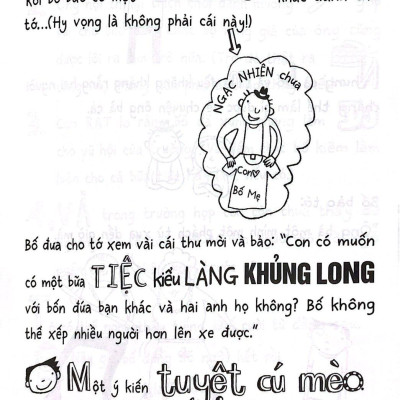 tớ...(Hy vọng là không phải cái này!)
NGẠC NHIÊN chưa
Con♡
Bố Mẹ
Bố đưa cho tớ xem vài cái thư mời và bảo: "Con có muốn
có một bữa TIỆC kiểu LÀNG KHỦNG LONG
với bốn đứa bạn khác và hai anh họ không? Bố không
thể xếp nhiều người hơn lên xe được."
Một ý kiến tuyệt cú mèo